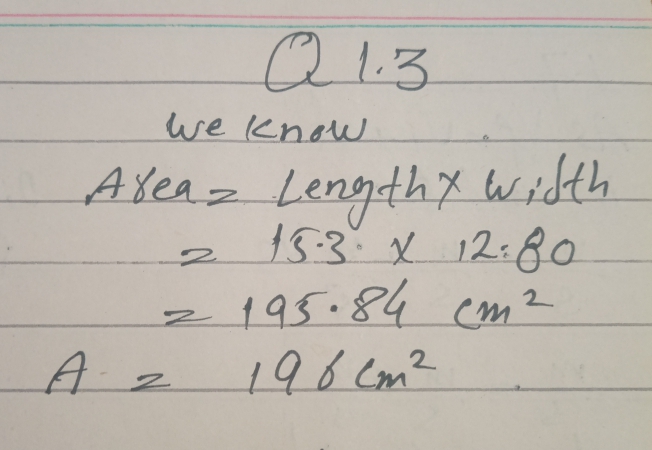 Q 1.3
We know
Area = Length x width
= 15.3 x 12.80
= 195.84 cm²
A = 196 cm²